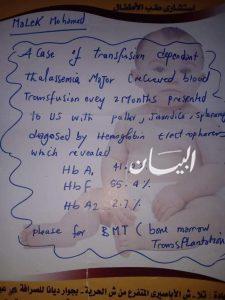 استشارى طب الأطفال
Malek Mohamed
A case of transfusion dependent
thalassemia Major (recieved blood
Transfusion evey 2 Months presented
to US with pallor, Jaundice,
diagnosed by Hemoglobin electrophoresis
which revealed
Hb A, 41.
البيان
HbF 55.4 %
Hb A2 2.7 %
please for BMT (bone marrow
Transplantation
ش الأباصيرى المتفرع من ش الحرية - بجوار ديانا للصرافة